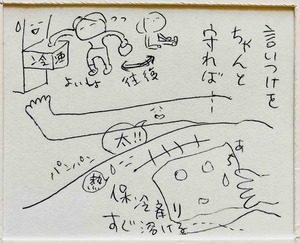 言いつけを
ちゃんと
守れば…
冷酒
よいしょ
往復
太!!
パンパン
熱
あ
保冷剤
すぐ溶ける